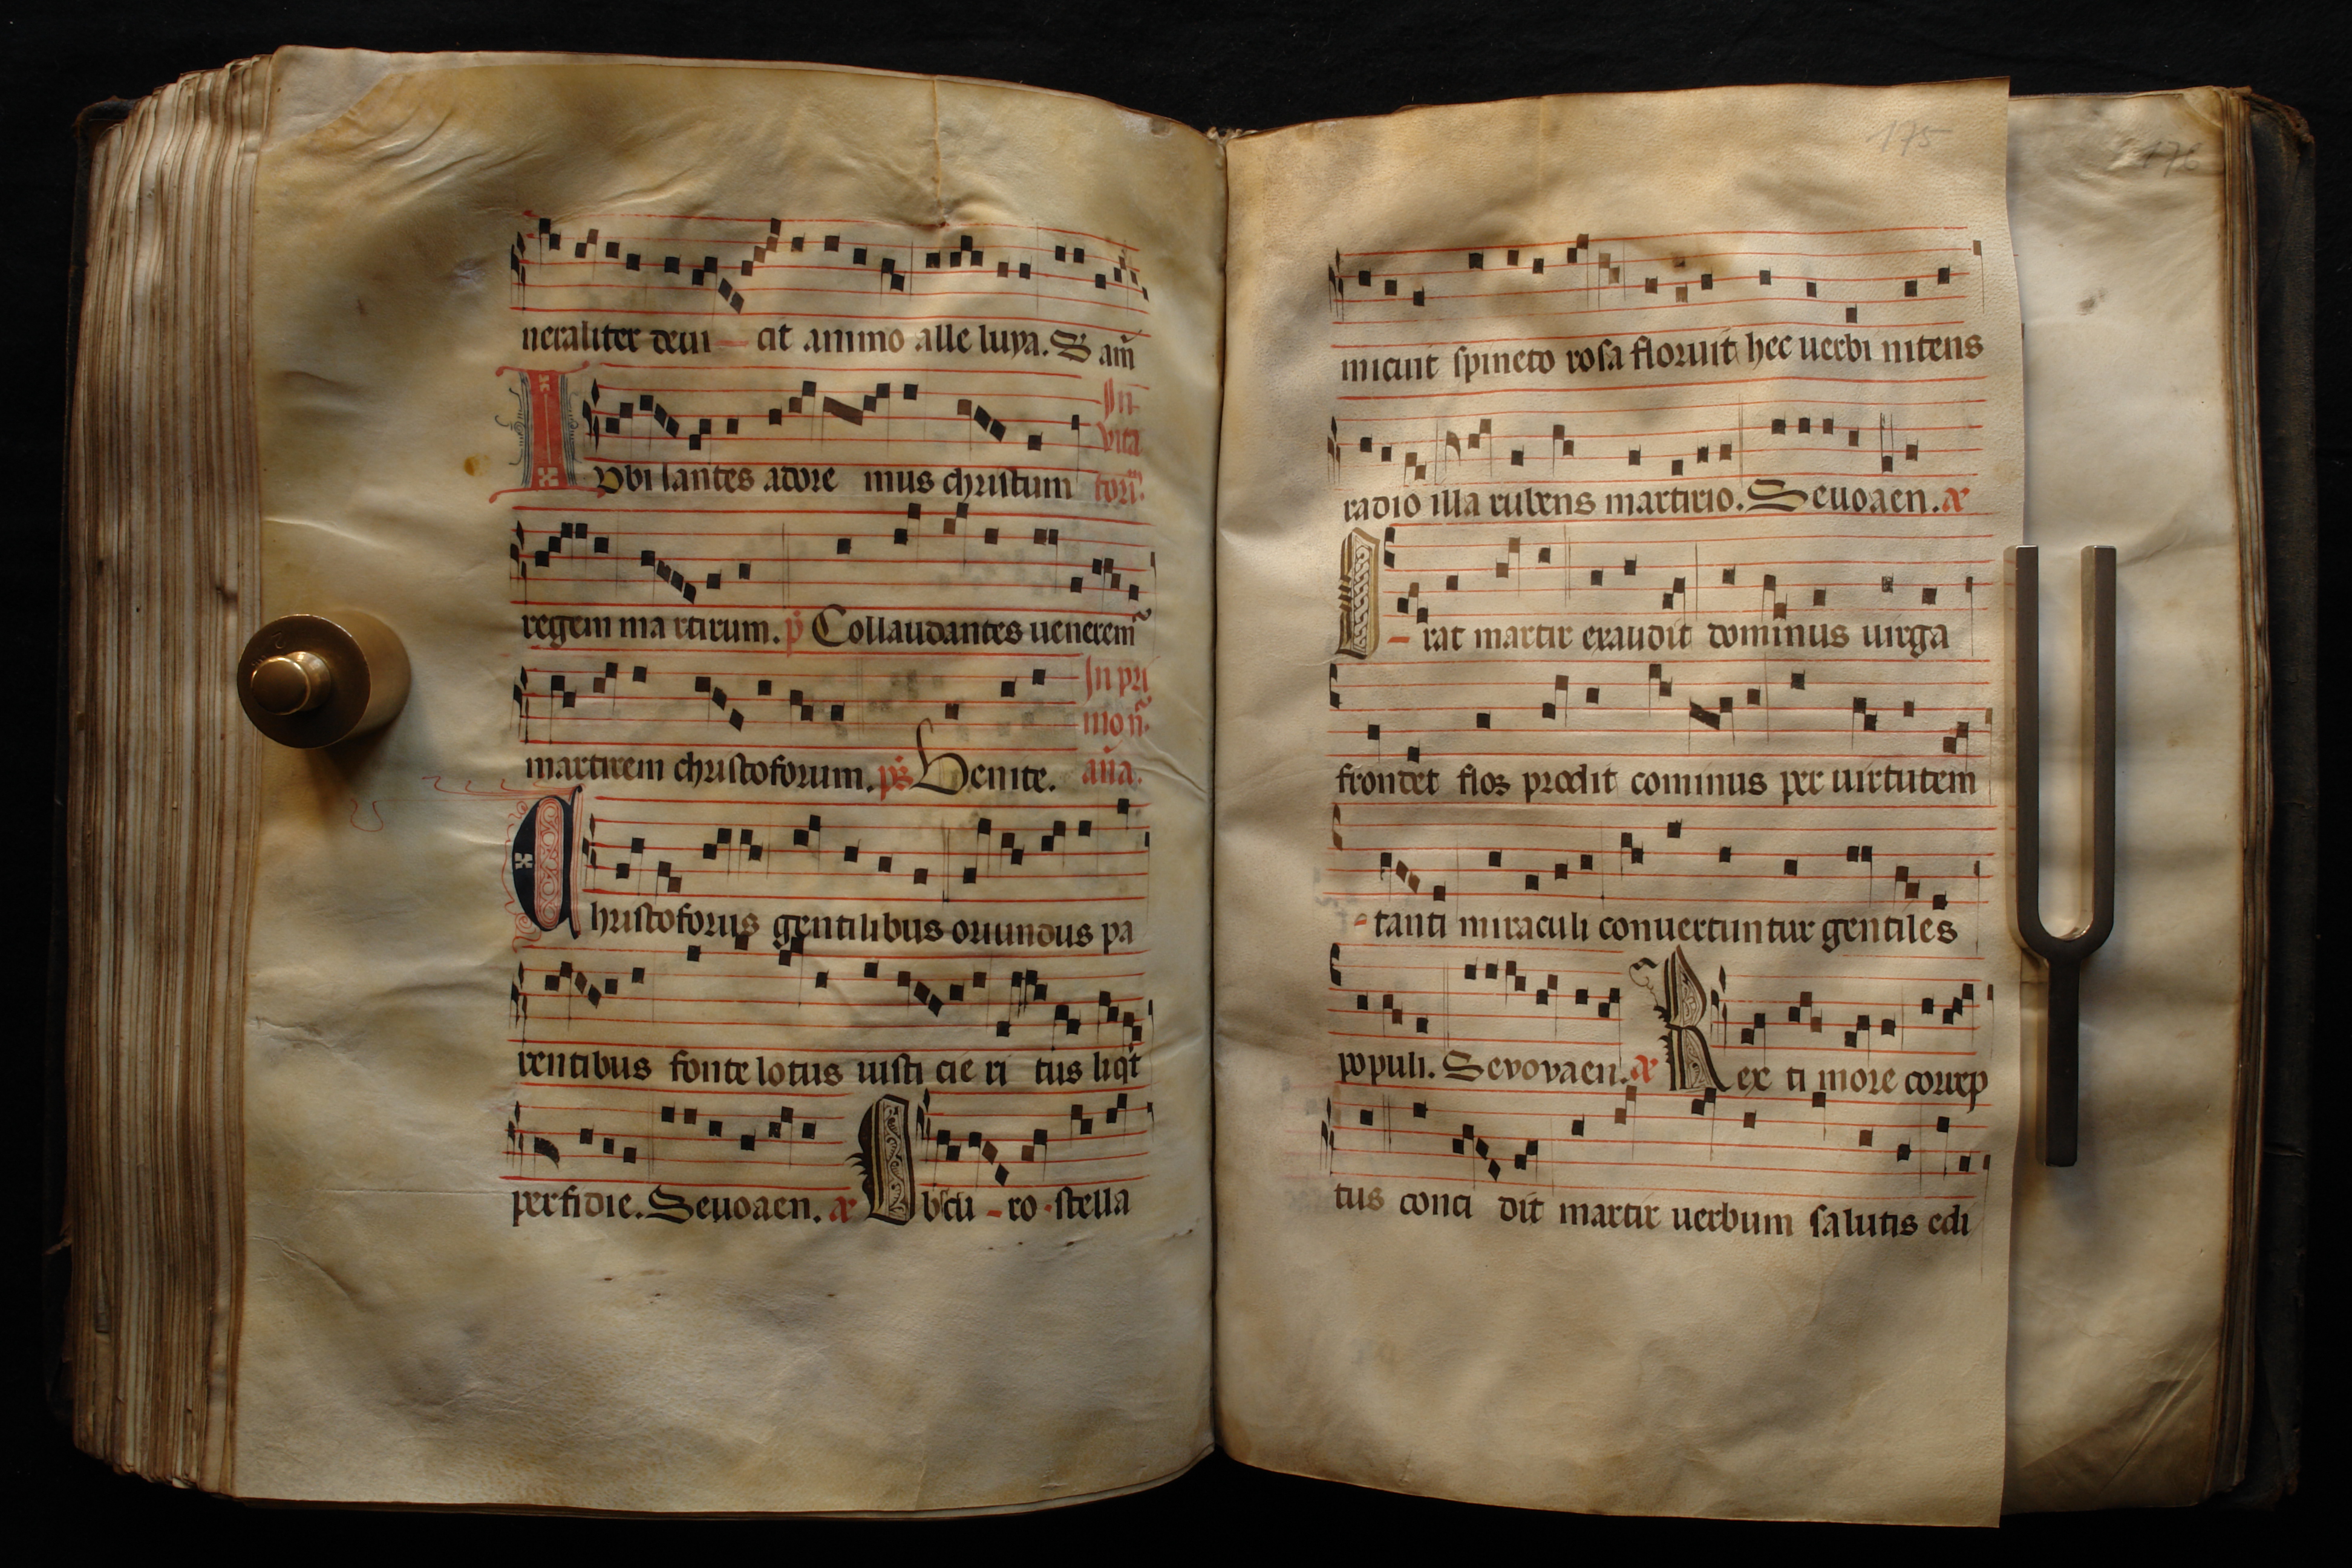 neraliter deui - cit animo alle luya. S am̄
In
vita
I Vbi lantes adore mus christum tori.
regem ma rtirum. p̄ Collaudantes uenerem̄
In pri
mo n̄.
martirem christoforum. ps̄ Venite. an̄a.
C hristoforus gentilibus oriundus pa
rentibus fonte lotus iusti cie ri tus liq̄t
perfidie. Seuoaen. æ O bscu - ro - stella
175
176
micuit spineto rosa floruit hec uerbi nitens
radio illa rubens martirio. Seuoaen. æ
O - rat martir exaudit dominus uirga
frondet flos prodit cominus per uirtutem
- tanti miraculi conuertuntur gentiles
populi. Sevovaen. æ R ex ti more correp
tus conci dit martir uerbum salutis edi